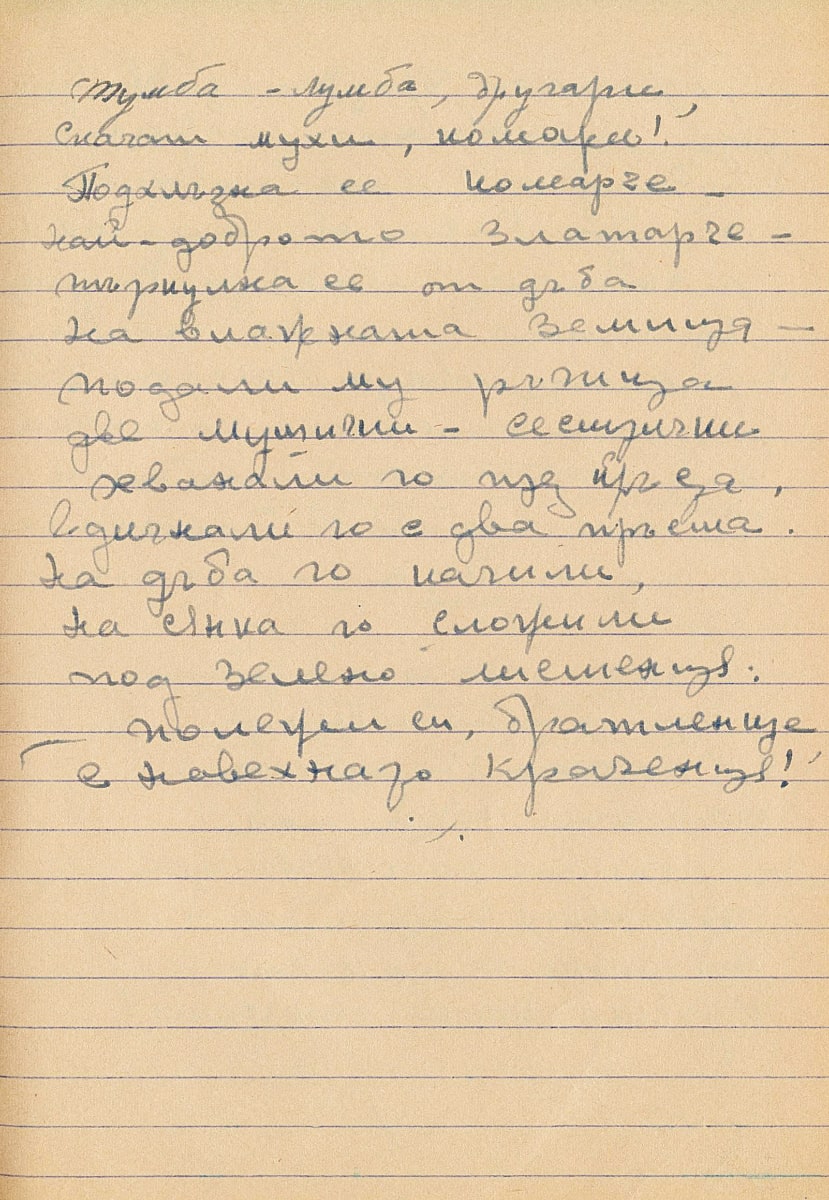 Тумба - лумба, другари,
Скачат мухи, комари!
Подхлъзна се комарче -
най-доброто златарче -
търкулна се от дъба
на влажната земица -
подали му ръчица
две мушички - сестрички
хванали го през кръста,
вдигнали го с два пръста.
На дъба го качили,
на сянка го сложили
под зелено листенце:
— полежи си, братленце
с навехнато краченце!